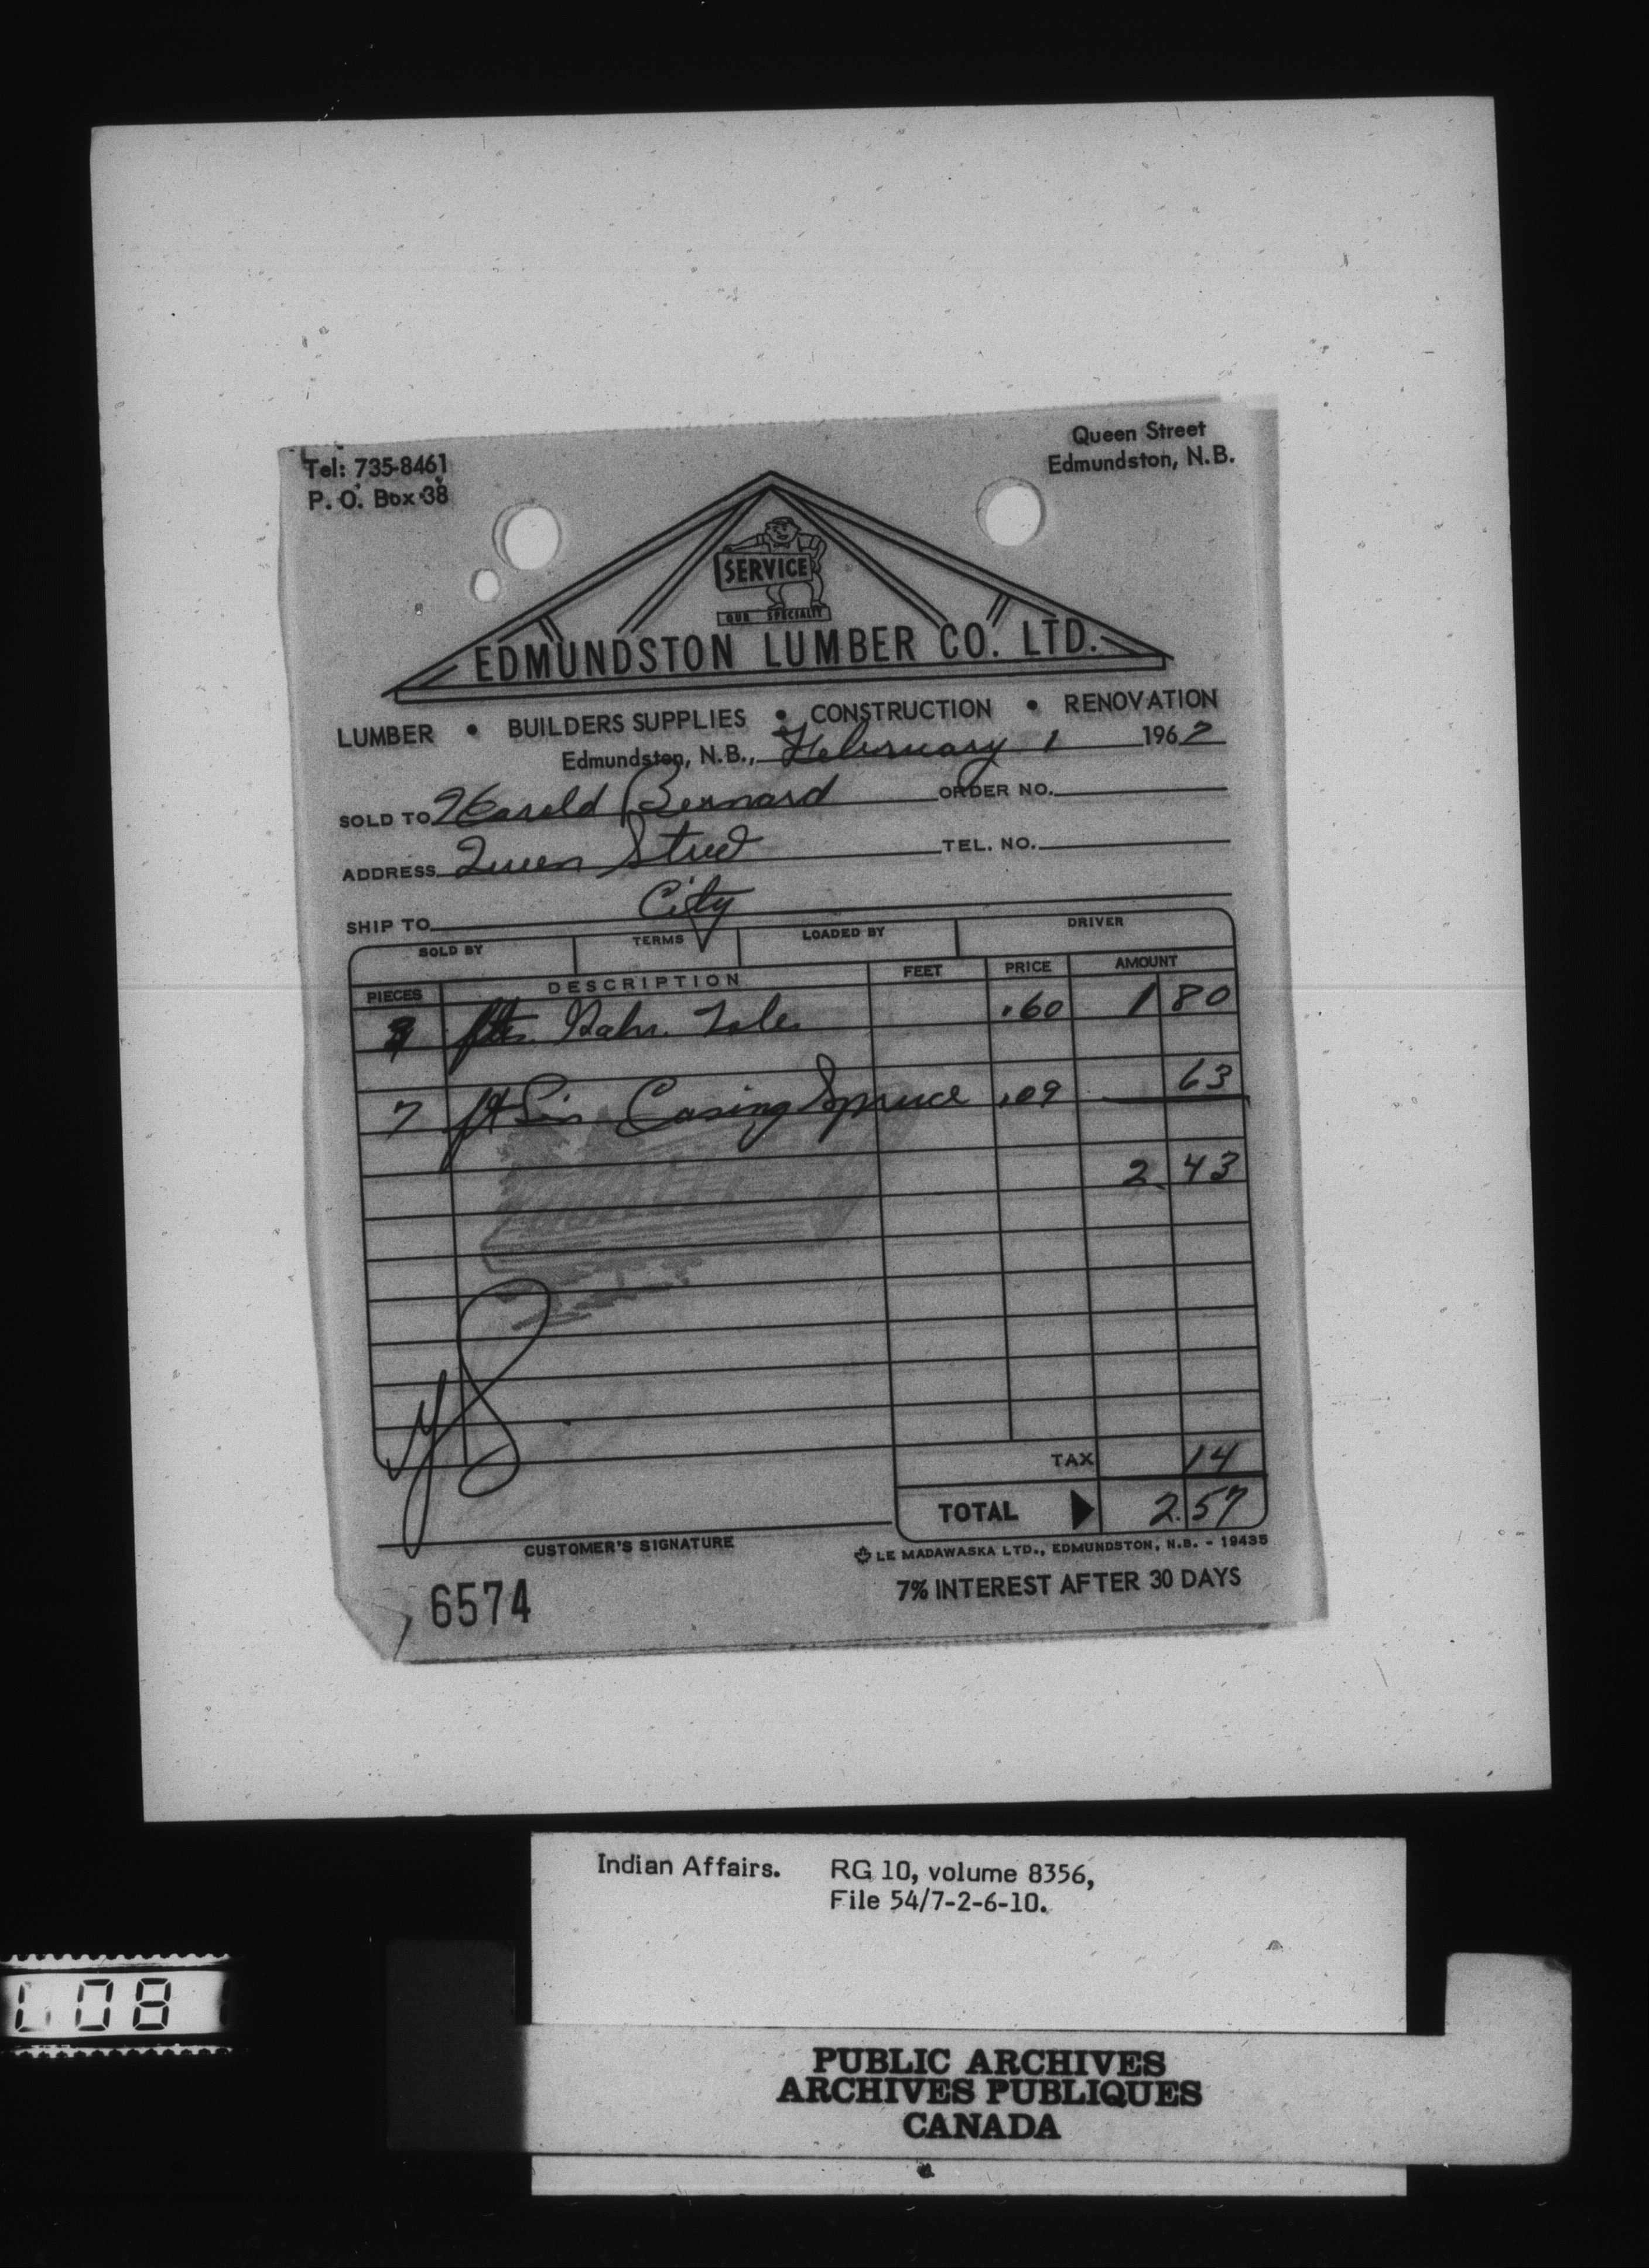 Tel: 735-8461
P. O. Box 38
Queen Street
Edmundston, N.B.
SERVICE
OUR SPECIALTY
EDMUNDSTON LUMBER CO. LTD.
LUMBER • BUILDERS SUPPLIES • CONSTRUCTION • RENOVATION
Edmundston, N.B., February 1 1962
SOLD TO Harold Bernard ORDER NO.
ADDRESS Queen Street TEL. NO.
SHIP TO City
SOLD BY TERMS LOADED BY DRIVER
PIECES DESCRIPTION FEET PRICE AMOUNT
3 .60 1 80
7 ft Casing Spruce .09 63
2.43
TAX 14
TOTAL 2.57
CUSTOMER'S SIGNATURE
LE MADAWASKA LTD., EDMUNDSTON, N.B. - 19435
6574
7% INTEREST AFTER 30 DAYS
Indian Affairs. RG 10, volume 8356,
File 54/7-2-6-10.
08
PUBLIC ARCHIVES
ARCHIVES PUBLIQUES
CANADA